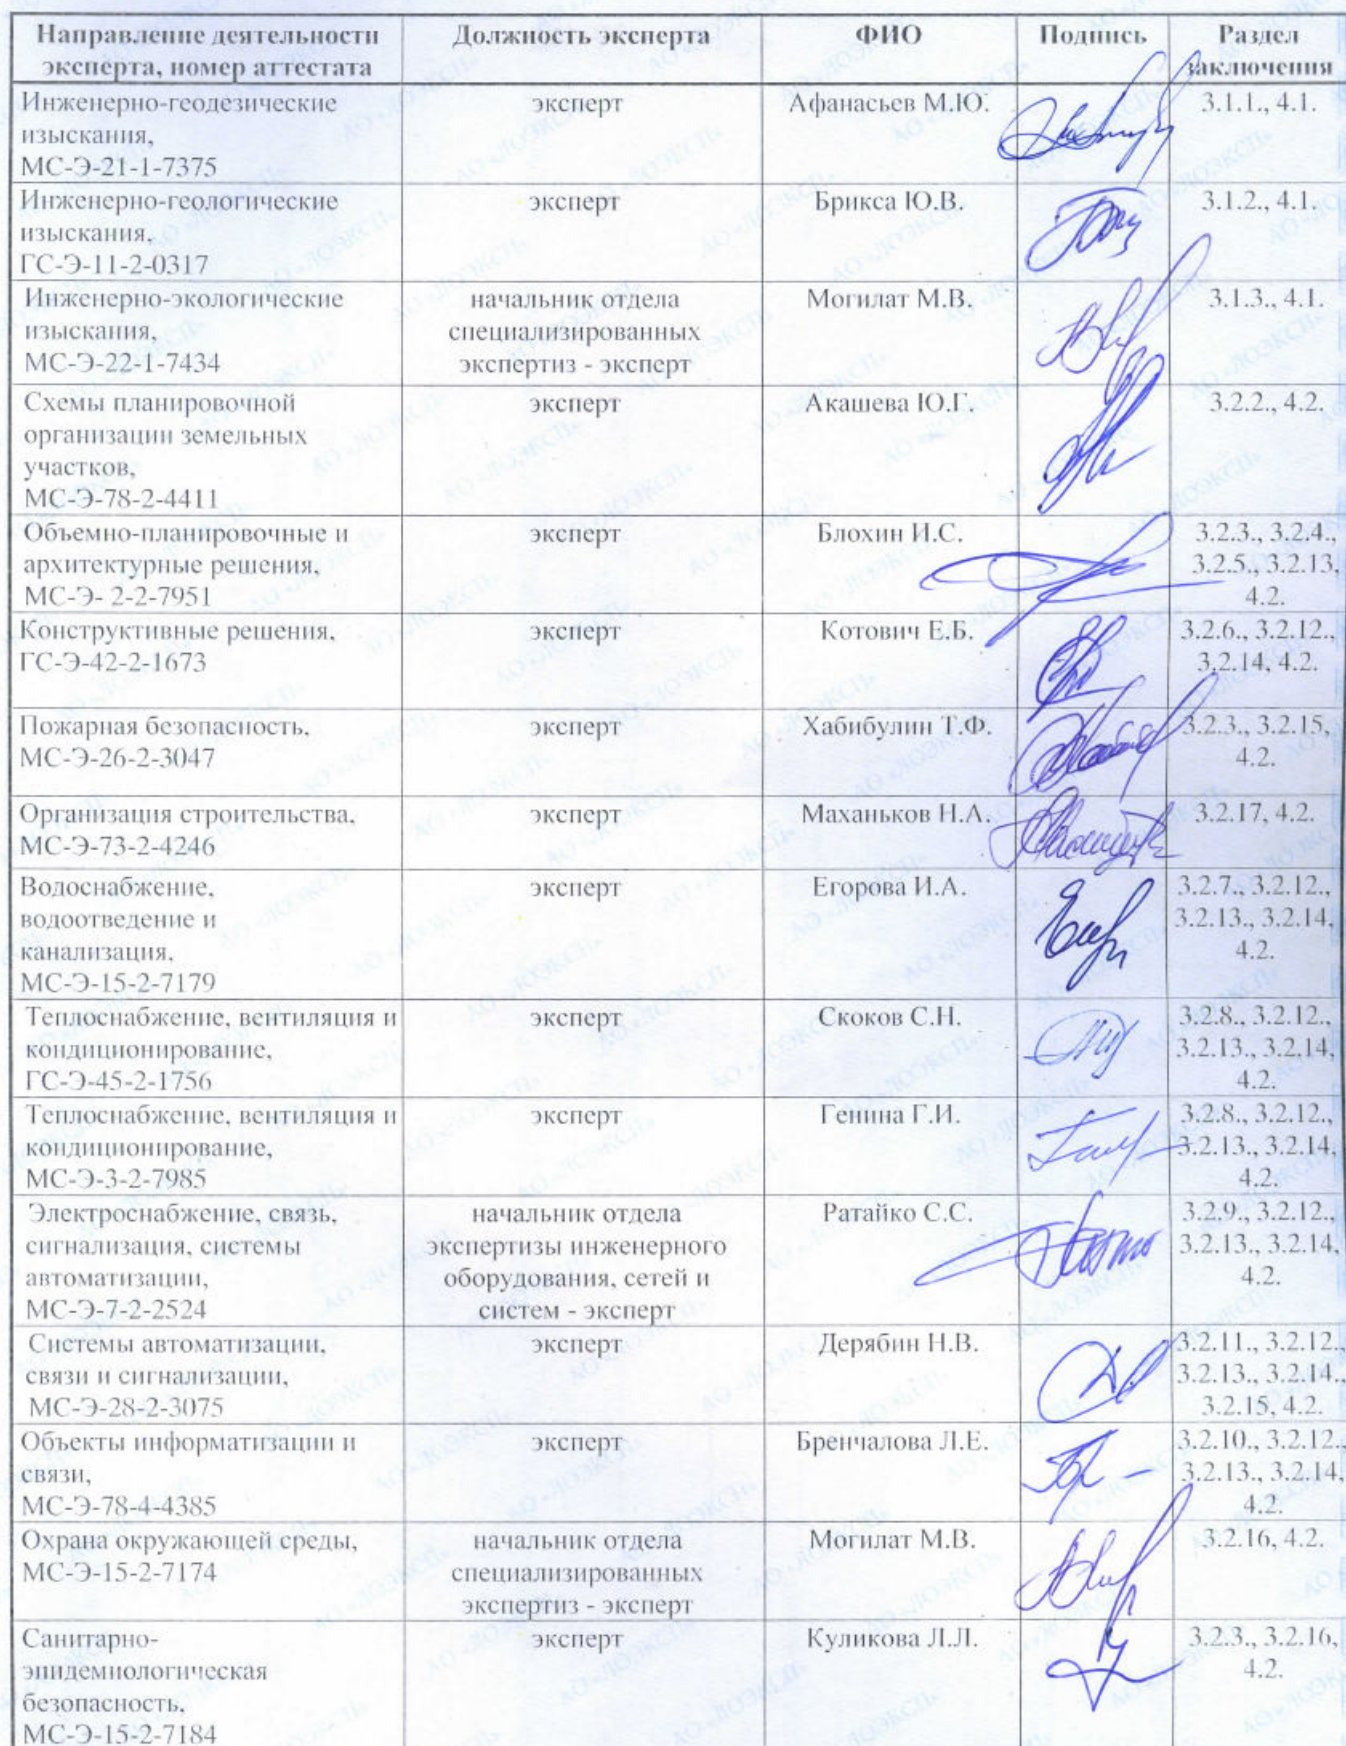 Направление деятельности эксперта, номер аттестата | Должность эксперта | ФИО | Подпись | Раздел заключения
Инженерно-геодезические
изыскания,
МС-Э-21-1-7375
эксперт
Афанасьев М.Ю.
3.1.1., 4.1.
Инженерно-геологические
изыскания,
ГС-Э-11-2-0317
эксперт
Брикса Ю.В.
3.1.2., 4.1.
Инженерно-экологические
изыскания,
МС-Э-22-1-7434
начальник отдела
специализированных
экспертиз - эксперт
Могилат М.В.
3.1.3., 4.1.
Схемы планировочной
организации земельных
участков,
МС-Э-78-2-4411
эксперт
Акашева Ю.Г.
3.2.2., 4.2.
Объемно-планировочные и
архитектурные решения,
МС-Э- 2-2-7951
эксперт
Блохин И.С.
3.2.3., 3.2.4.,
3.2.5., 3.2.13,
4.2.
Конструктивные решения,
ГС-Э-42-2-1673
эксперт
Котович Е.Б.
3.2.6., 3.2.12.,
3.2.14, 4.2.
Пожарная безопасность,
МС-Э-26-2-3047
эксперт
Хабибулин Т.Ф.
3.2.3., 3.2.15,
4.2.
Организация строительства,
МС-Э-73-2-4246
эксперт
Маханьков Н.А.
3.2.17, 4.2.
Водоснабжение,
водоотведение и
канализация,
МС-Э-15-2-7179
эксперт
Егорова И.А.
3.2.7., 3.2.12.,
3.2.13., 3.2.14,
4.2.
Теплоснабжение, вентиляция и
кондиционирование,
ГС-Э-45-2-1756
эксперт
Скоков С.Н.
3.2.8., 3.2.12.,
3.2.13., 3.2.14,
4.2.
Теплоснабжение, вентиляция и
кондиционирование,
МС-Э-3-2-7985
эксперт
Генина Г.И.
3.2.8., 3.2.12.,
3.2.13., 3.2.14,
4.2.
Электроснабжение, связь,
сигнализация, системы
автоматизации,
МС-Э-7-2-2524
начальник отдела
экспертизы инженерного
оборудования, сетей и
систем - эксперт
Ратайко С.С.
3.2.9., 3.2.12.,
3.2.13., 3.2.14,
4.2.
Системы автоматизации,
связи и сигнализации,
МС-Э-28-2-3075
эксперт
Дерябин Н.В.
3.2.11., 3.2.12.,
3.2.13., 3.2.14.,
3.2.15, 4.2.
Объекты информатизации и
связи,
МС-Э-78-4-4385
эксперт
Бренчалова Л.Е.
3.2.10., 3.2.12.,
3.2.13., 3.2.14,
4.2.
Охрана окружающей среды,
МС-Э-15-2-7174
начальник отдела
специализированных
экспертиз - эксперт
Могилат М.В.
3.2.16, 4.2.
Санитарно-
эпидемиологическая
безопасность,
МС-Э-15-2-7184
эксперт
Куликова Л.Л.
3.2.3., 3.2.16,
4.2.